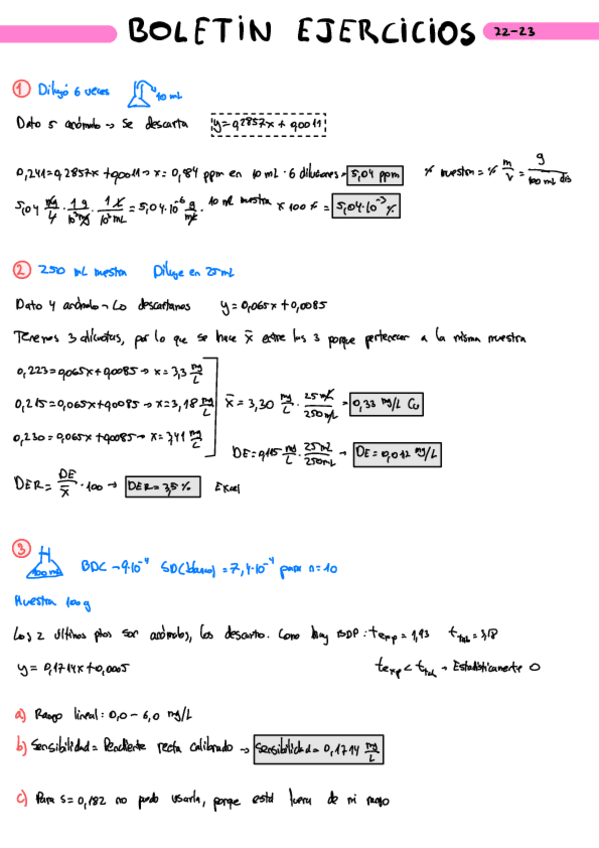 BOLETIN EJERCICIOS 22-23
① Diluyó 6 veces 10 mL
Dato 5 anómalo → Se descarta y=0,2857x + 0,0011
0,241=0,2857x +0,0011→ x= 0,84 ppm en 10 mL · 6 diluciones = 5,04 ppm % muestra = % m/v = g/100 mL dis
5,04 mg/L · 1 g/10³mg · 1 L/10³mL = 5,04·10⁻⁶ g/mL · 10 mL muestra x 100 % = 5,04·10⁻³ %
② 250 mL muestra Diluye en 25 mL
Dato 4 anómalo → Lo descartamos y=0,065x+0,0085
Tenemos 3 alícuotas, por lo que se hace x̄ entre los 3 porque pertenecen a la misma muestra
0,223=0,065x+0,0085→ x=3,3 mg/L
0,215=0,065x+0,0085→ x=3,18 mg/L x̄ = 3,30 mg/L · 25 mL/250 mL = 0,33 mg/L Cu
0,230=0,065x+0,0085→ x=3,41 mg/L
DE=0,115 mg/L · 25mL/250mL → DE=0,012 mg/L
DER= DE/x̄ ·100 → DER=3,5% Excel
③ 100 mL BDC →9·10⁻⁴ SD(blanco) =7,4·10⁻⁴ para n=10
Muestra 100g
Los 2 últimos ptos son anómalos, los descarto. Como hay BDP: t exp = 1,93 t tab = 3,18
y= 0,1714x+0,0005 t exp < t tab → Estadísticamente 0
a) Rango lineal: 0,0 - 6,0 mg/L
b) Sensibilidad= Pendiente recta calibrado → Sensibilidad= 0,1714 mg/L
c) Para S= 0,182 no puedo usarla, porque está fuera de mi rango